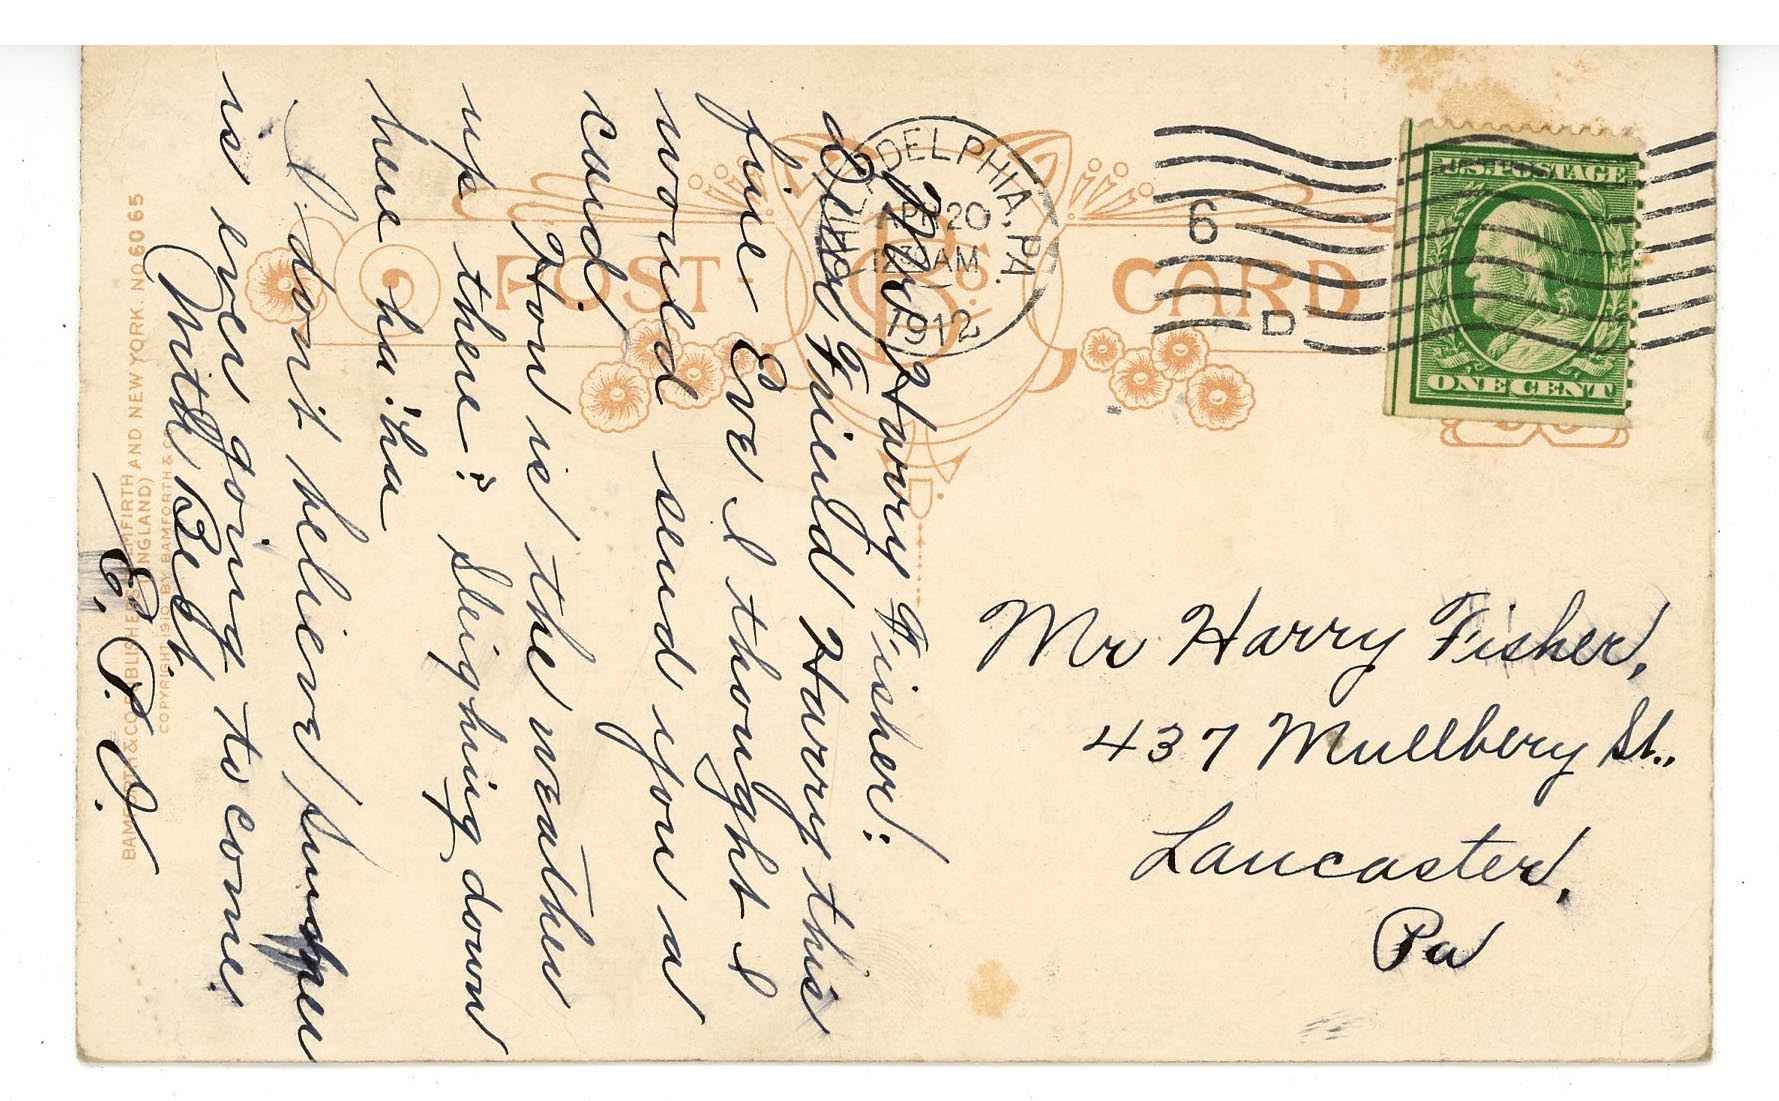 POST CARD
PHILADELPHIA, PA.
APR 20
AM
1912
6
D
U.S. POSTAGE
ONE CENT
Mr Harry Fisher,
437 Mullbery St.,
Lancaster,
Pa
Mr. Harry Fisher:
Dear Friend Harry this
fine Eve I thought I
would send you a
card.
How is the weather
up there? Sleighing down
here ha! ha
I don't believe summer
is ever going to come.
With Best,
E. P. S.
BAMFORTH & CO. PUBLISHERS HOLMFIRTH AND NEW YORK. NO 6065
(ENGLAND)
COPYRIGHT 1910 BY BAMFORTH & CO.